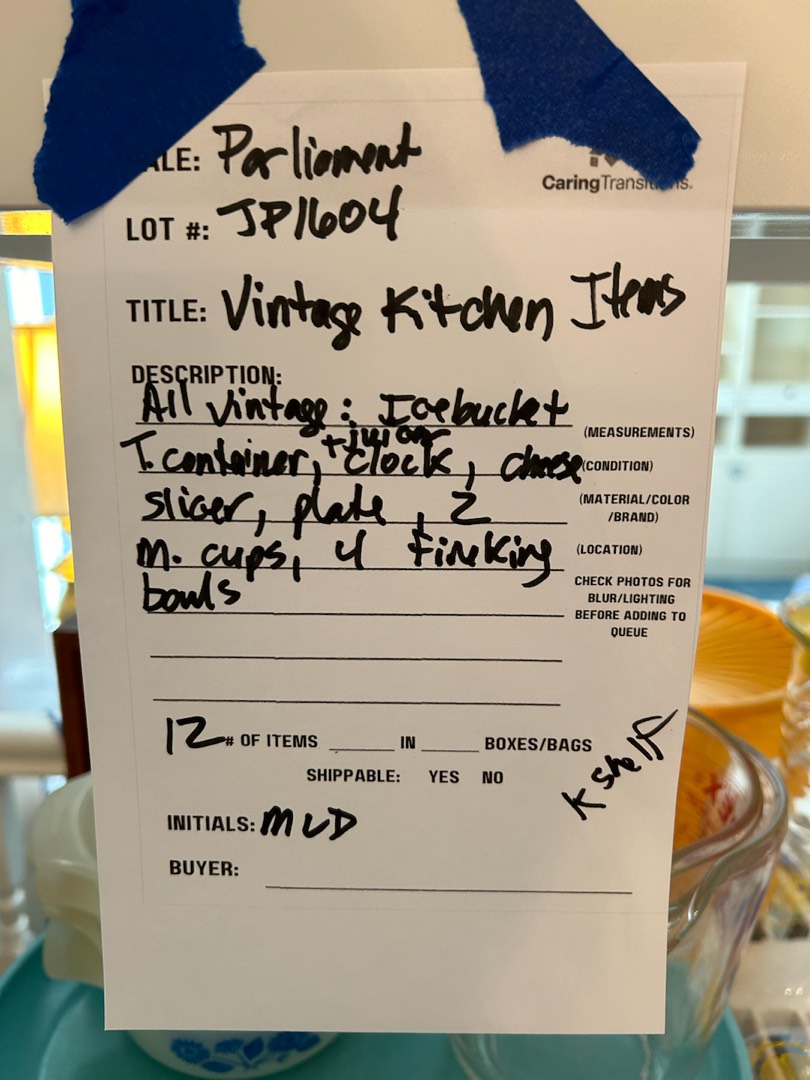 ALE: Parliament
CaringTransitions.
LOT #: JP1604
TITLE: Vintage Kitchen Items
DESCRIPTION:
All Vintage: Icebucket
(MEASUREMENTS)
+ juicer
T. container, clock, cheese
(CONDITION)
slicer, plate, 2
(MATERIAL/COLOR
/BRAND)
m. cups, 4 fireking
(LOCATION)
bowls
CHECK PHOTOS FOR
BLUR/LIGHTING
BEFORE ADDING TO
QUEUE
12 # OF ITEMS ______ IN ______ BOXES/BAGS
SHIPPABLE: YES NO
K shelf
INITIALS: MLD
BUYER: